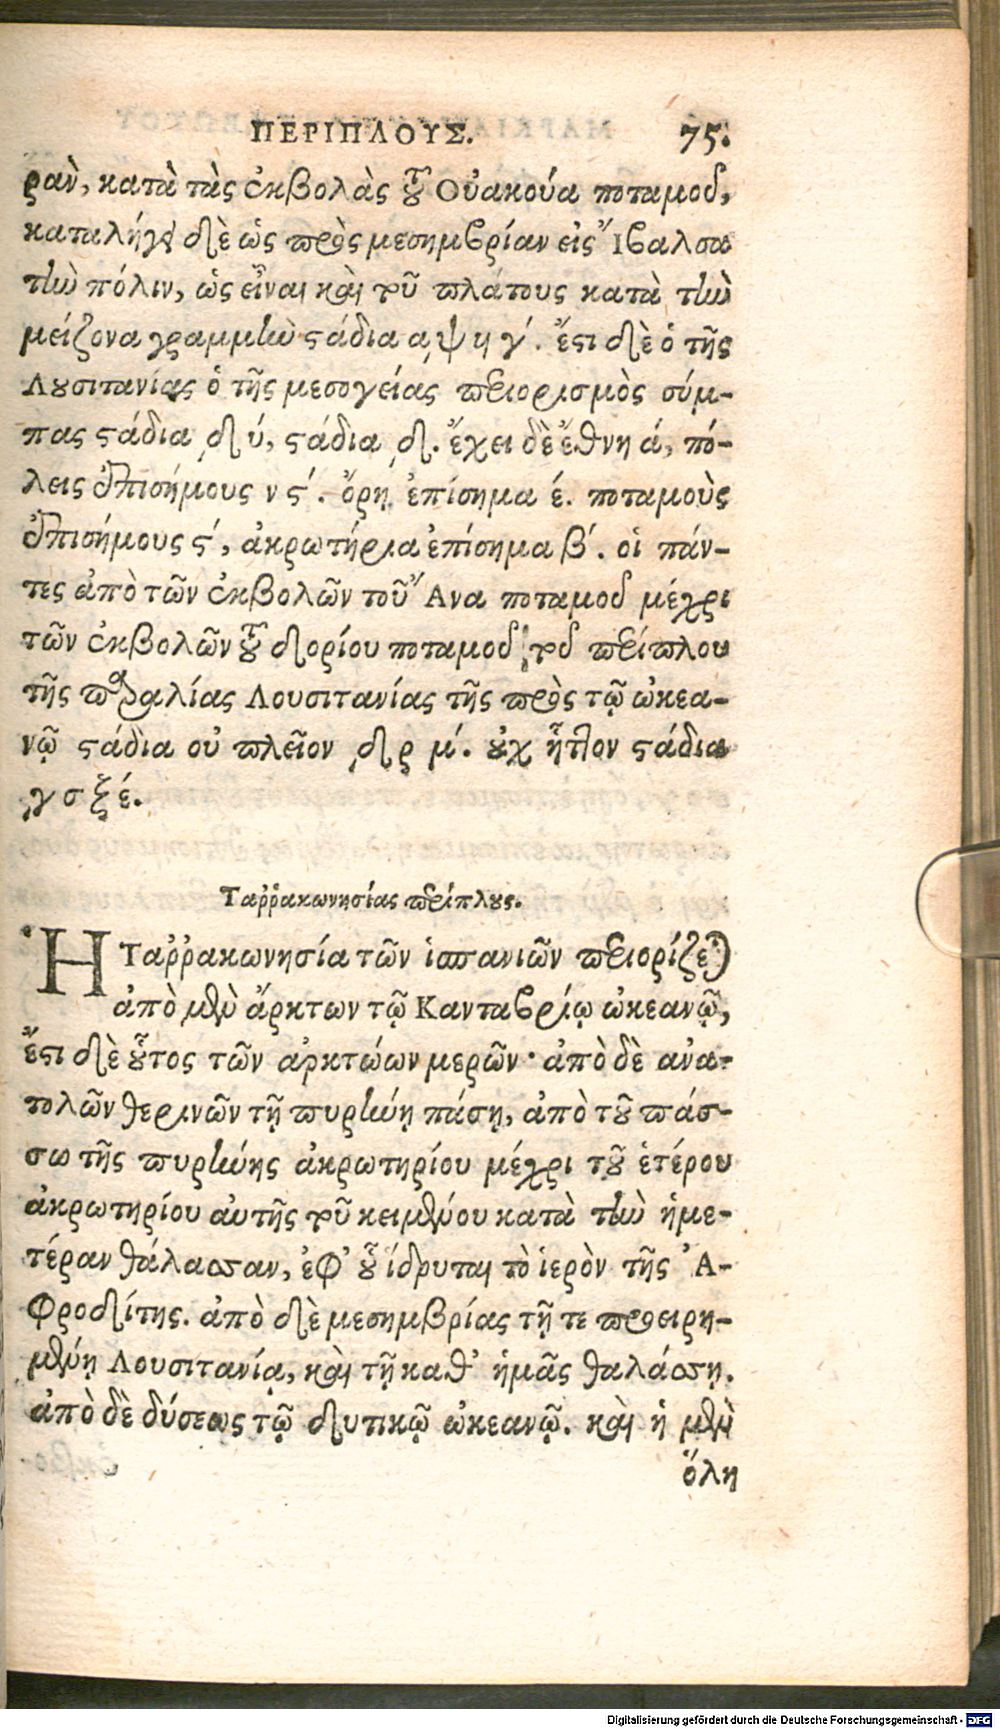 ΠΕΡΙΠΛΟΥΣ. 75.
ραν, κατὰ τὰς ἐκβολὰς τοῦ Οὐακούα ποταμοῦ,
καταλήγει δὲ ὡς πρὸς μεσημβρίαν εἰς Ἴβαλσα
τὴν πόλιν, ὡς εἶναι καὶ τοῦ πλάτους κατὰ τὴν
μείζονα γραμμὴν στάδια ͵αψη γ΄. ἔστι δὲ ὁ τῆς
Λουσιτανίας ὁ τῆς μεσογείας περιορισμὸς σύμ-
πας στάδια ͵δύ, στάδια ͵δ. ἔχει δὲ ἔθνη ά, πό-
λεις ἐπισήμους νϛ΄. ὄρη ἐπίσημα έ. ποταμοὺς
ἐπισήμους ϛ΄, ἀκρωτήρια ἐπίσημα β΄. οἱ πάν-
τες ἀπὸ τῶν ἐκβολῶν τοῦ Ἄνα ποταμοῦ μέχρι
τῶν ἐκβολῶν τοῦ δορίου ποταμοῦ τοῦ περίπλου
τῆς παραλίας Λουσιτανίας τῆς πρὸς τῷ ὠκεα-
νῷ στάδια οὐ πλεῖον ͵δρμ΄. οὐχ ἧττον στάδια
͵γσξέ.
Ταῤῥακωνησίας περίπλους.
Ἡ Ταῤῥακωνησία τῶν ἱσπανιῶν περιορίζεται
ἀπὸ μὲν ἄρκτων τῷ Κανταβρίῳ ὠκεανῷ,
ἔστι δὲ οὗτος τῶν ἀρκτώων μερῶν· ἀπὸ δὲ ἀνα-
τολῶν θερινῶν τῇ πυρήνῃ πάσῃ, ἀπὸ τοῦ πάσ-
σω τῆς πυρήνης ἀκρωτηρίου μέχρι τοῦ ἑτέρου
ἀκρωτηρίου αὐτῆς τοῦ κειμένου κατὰ τὴν ἡμε-
τέραν θάλασσαν, ἐφ᾽ οὗ ἵδρυται τὸ ἱερὸν τῆς Ἀ-
φροδίτης. ἀπὸ δὲ μεσημβρίας τῇ τε προειρη-
μένῃ Λουσιτανίᾳ, καὶ τῇ καθ᾽ ἡμᾶς θαλάσσῃ.
ἀπὸ δὲ δύσεως τῷ δυτικῷ ὠκεανῷ. καὶ ἡ μὲν
ὅλη
Digitalisierung gefördert durch die Deutsche Forschungsgemeinschaft - DFG